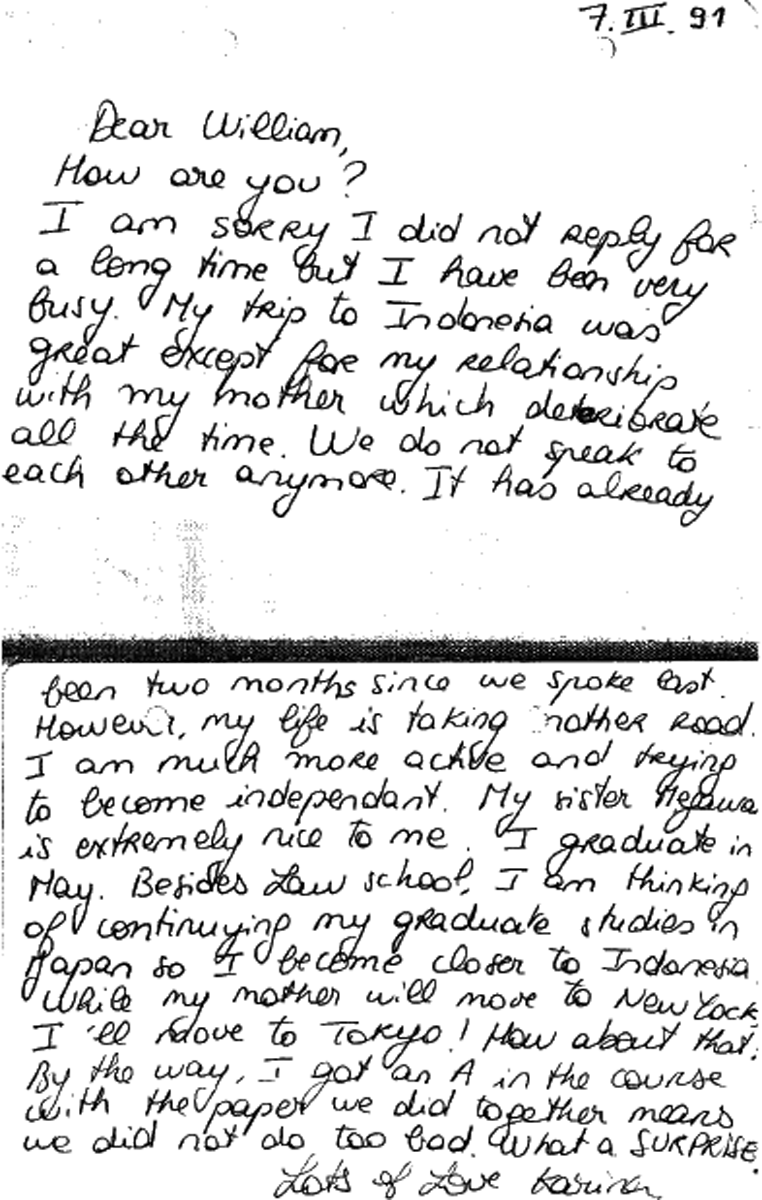 7. III. 91
Dear William,
How are you?
I am sorry I did not reply for
a long time but I have been very
busy. My trip to Indonesia was
great except for my relationship
with my mother which deteriorate
all the time. We do not speak to
each other anymore. It has already
been two months since we spoke last.
However, my life is taking nother road.
I am much more active and trying
to become independant. My sister Megawa
is extremely nice to me. I graduate in
May. Besides Law school, I am thinking
of continuying my graduate studies in
Japan so I become closer to Indonesia.
While my mother will move to New York,
I'll move to TOKYO! How about that.
By the way, I got an A in the course
with the paper we did together means
we did not do too bad. What a SURPRISE.
Lots of Love Karina